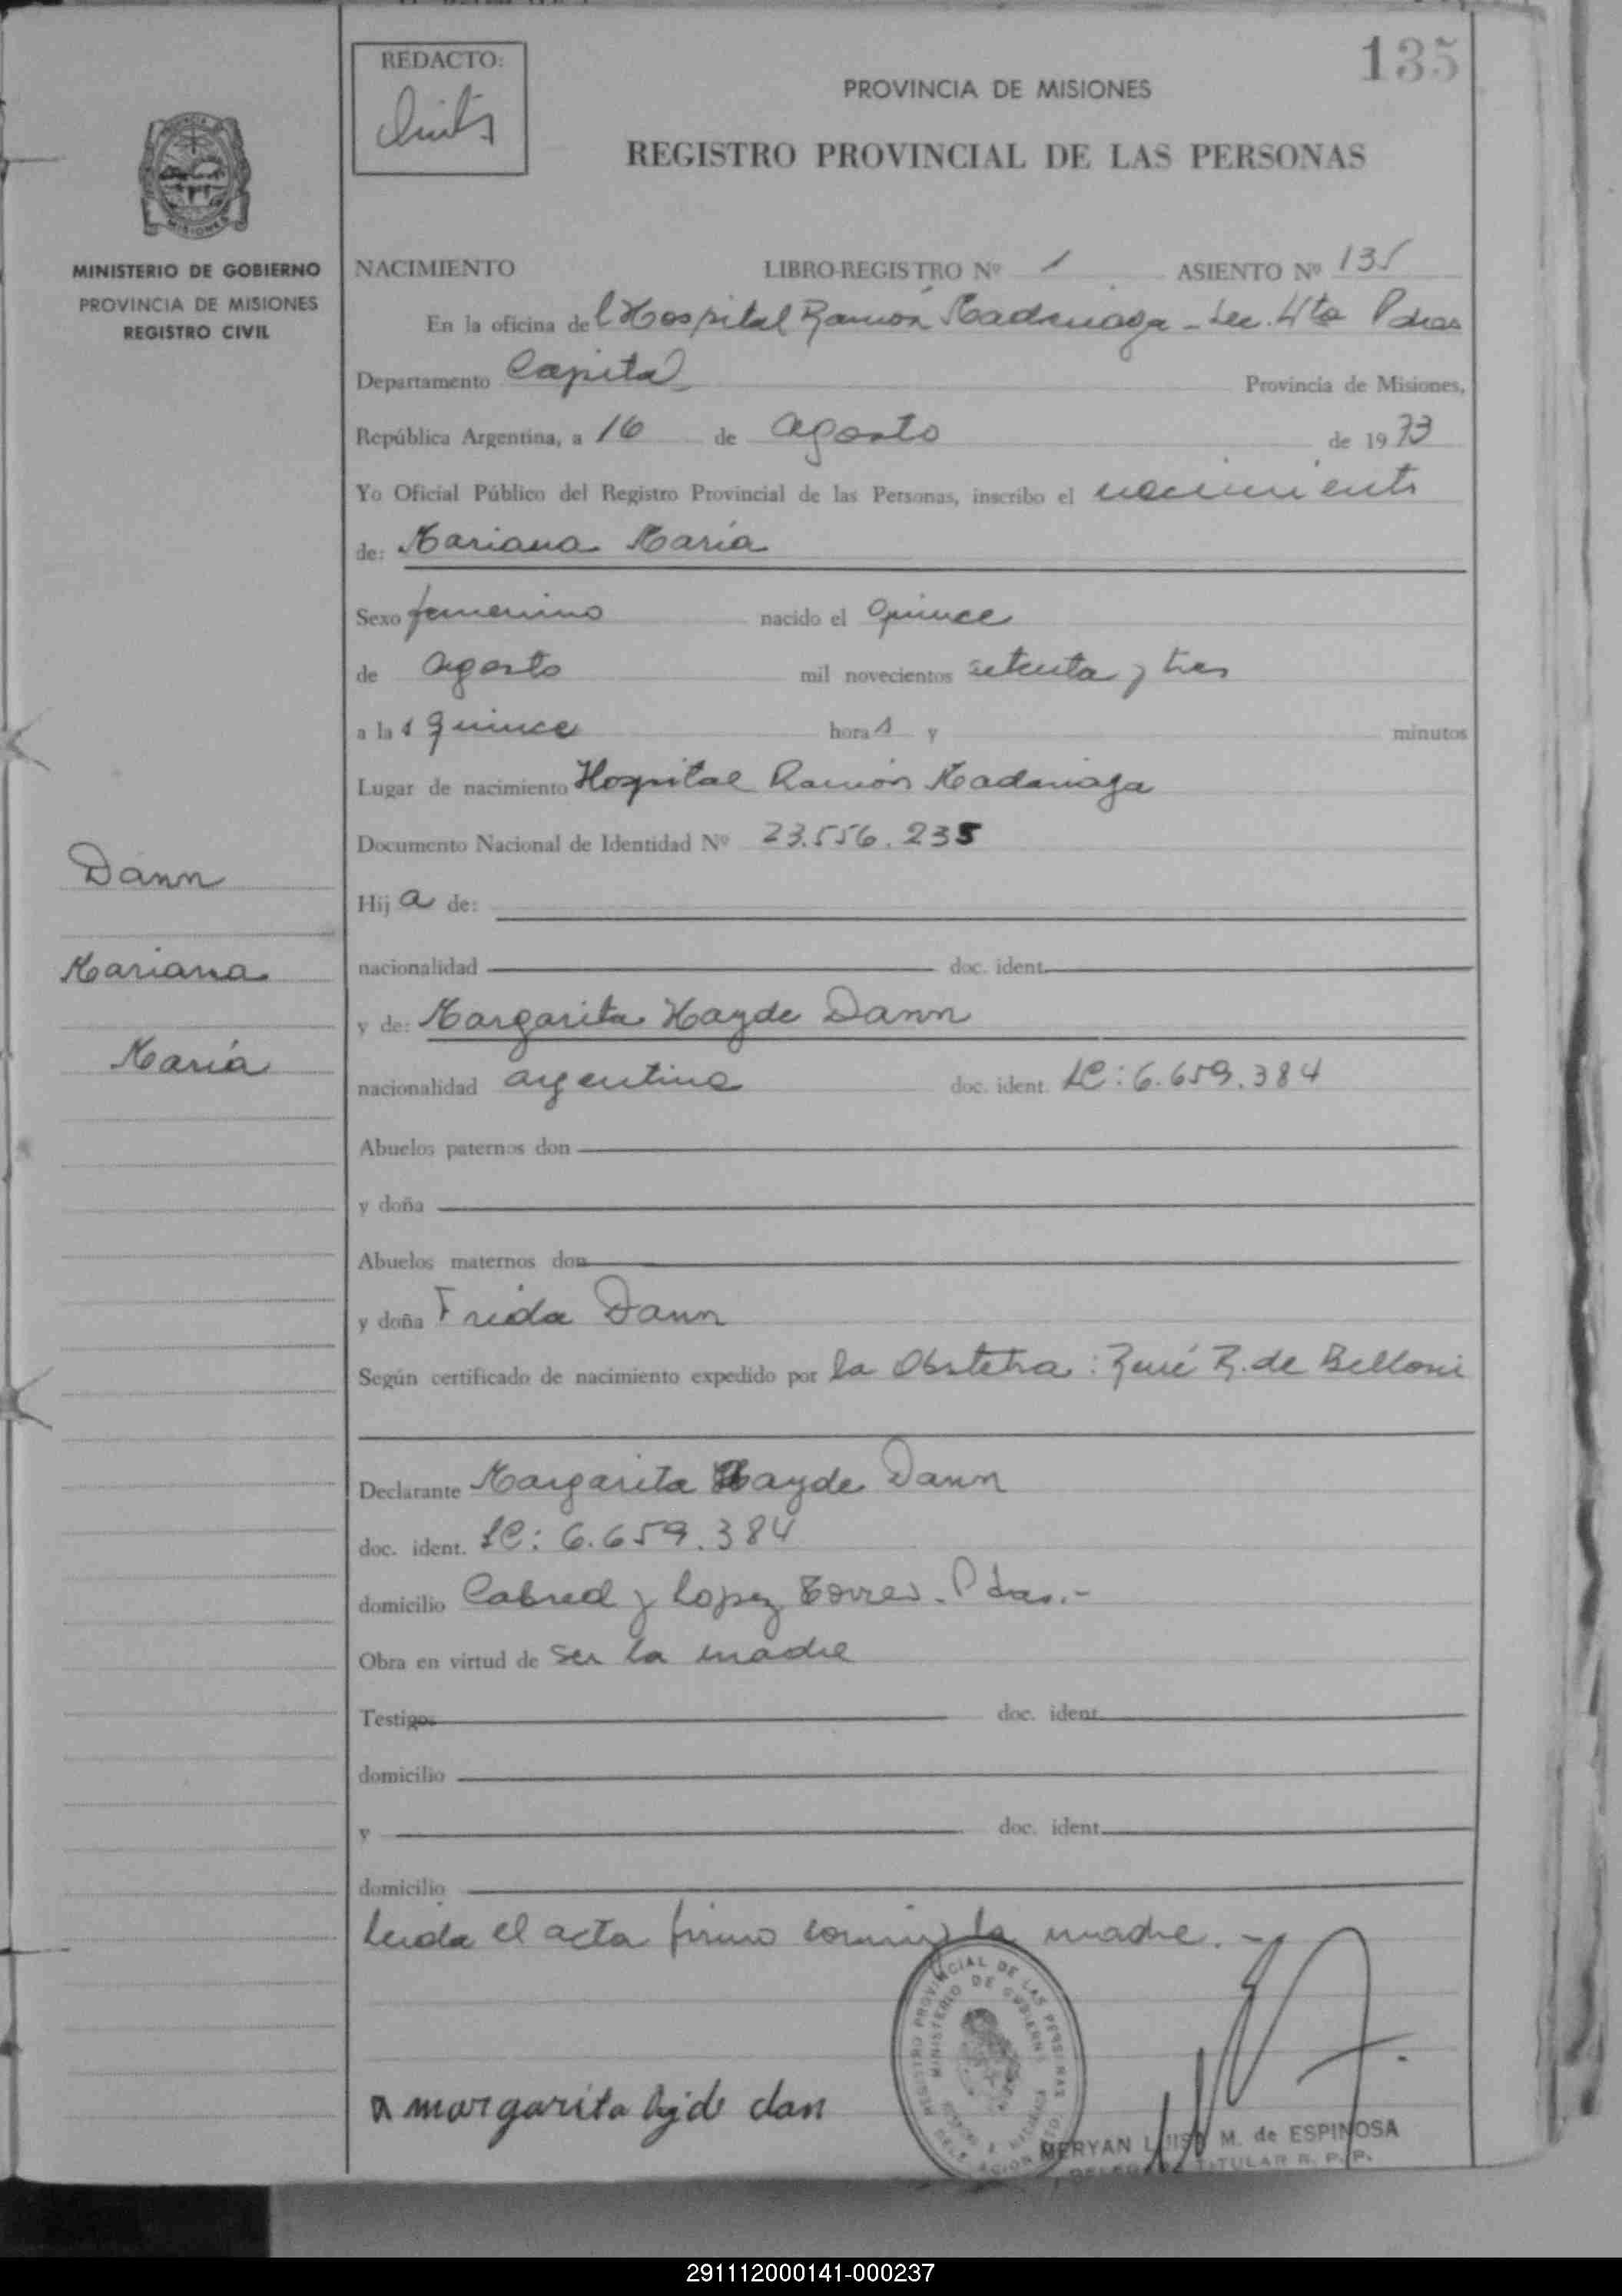 135
REDACTO:
PROVINCIA DE MISIONES
REGISTRO PROVINCIAL DE LAS PERSONAS
MISIONES
MINISTERIO DE GOBIERNO
PROVINCIA DE MISIONES
REGISTRO CIVIL
NACIMIENTO LIBRO-REGISTRO Nº 1 ASIENTO Nº 135
En la oficina del Hospital Ramón Madariaga - Sec. 4ta Pdas
Departamento Capital Provincia de Misiones,
República Argentina, a 16 de agosto de 1973
Yo Oficial Público del Registro Provincial de las Personas, inscribo el nacimiento
de: Mariana María
Sexo femenino nacido el quince
de agosto mil novecientos setenta y tres
a las quince horas y minutos
Lugar de nacimiento Hospital Ramón Madariaga
Documento Nacional de Identidad Nº 23.556.235
Dann
Hija de:
Mariana
nacionalidad doc. ident.
y de: Margarita Hayde Dann
María
nacionalidad argentina doc. ident. LC: 6.659.384
Abuelos paternos don
y doña
Abuelos maternos don
y doña Frida Dann
Según certificado de nacimiento expedido por la Obstetra: René R. de Belloni
Declarante Margarita Hayde Dann
doc. ident. LC: 6.659.384
domicilio Cabred y Lopez Torres. Pdas.-
Obra en virtud de ser la madre
Testigos doc. ident.
domicilio
y doc. ident.
domicilio
Leida el acta firma conmigo la madre.-
REGISTRO PROVINCIAL DE LAS PERSONAS
MINISTERIO DE GOBIERNO
margarita Ajde dan
MERYAN LUISA M. de ESPINOSA
TITULAR R. P. P.
291112000141-000237